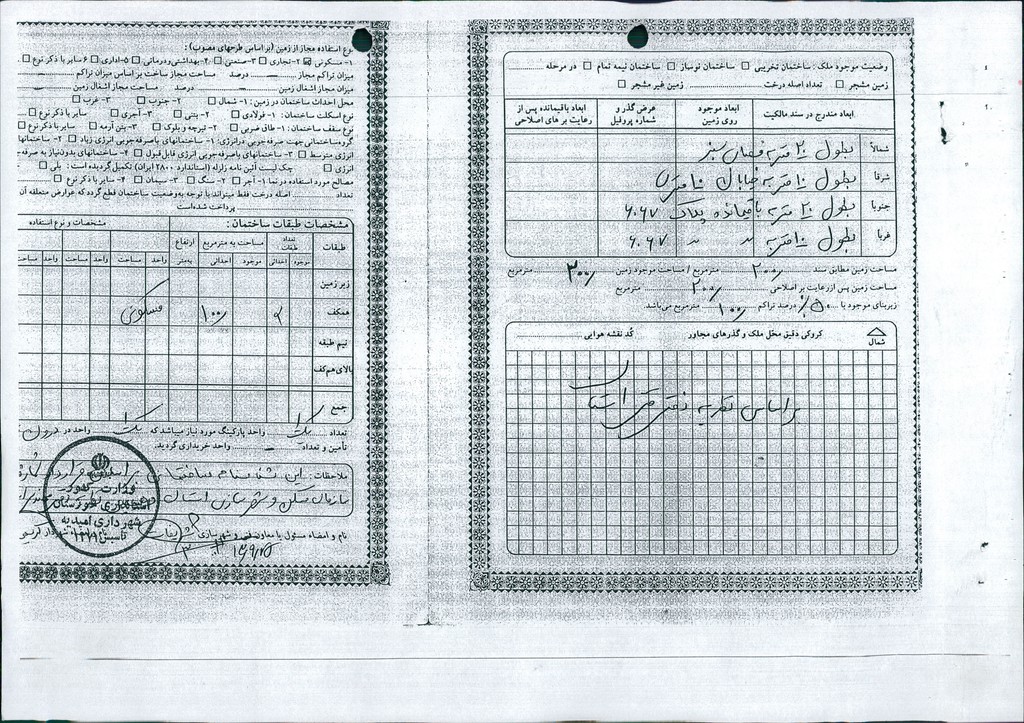 وضعیت موجود ملک: ساختمان تخریبی □ ساختمان نوساز □ ساختمان نیمه تمام □ در مرحله ..........
زمین مشجر □ تعداد اصله درخت .......... زمین غیر مشجر □
ابعاد مندرج در سند مالکیت
ابعاد موجود روی زمین
عرض گذر و شماره پروفیل
ابعاد باقیمانده پس از رعایت بر های اصلاحی
شمالاً بطول ۲۰ متر به فضای سبز
شرقا بطول ۱۰ متر به خیابان ۱۰ متری
جنوبا بطول ۲۰ متر به باقیمانده پلاک ۶۰۶۷
غربا بطول ۱۰ متر به " " ۶۰۶۷
مساحت زمین مطابق سند ۲۰۰ مترمربع / مساحت موجود زمین ۲۰۰ مترمربع
مساحت زمین پس از رعایت بر اصلاحی ۲۰۰ مترمربع
زیربنای موجود با ۵۰٪ درصد تراکم ۱۰۰ مترمربع می‌باشد.
کروکی دقیق محل ملک و گذرهای مجاور
کد نقشه هوایی ..........
شمال
بر اساس نظریه دفتر فنی استان
نوع استفاده مجاز از زمین (بر اساس طرحهای مصوب) :
۱- مسکونی ☑ ۲- تجاری □ ۳- صنعتی □ ۴- بهداشتی و درمانی □ ۵- اداری □ ۶ سایر با ذکر نوع □
میزان تراکم مجاز ـــ درصد مساحت مجاز ساخت بر اساس میزان تراکم
میزان مجاز اشغال زمین ـــ درصد مساحت مجاز اشغال زمین ـــ
محل احداث ساختمان در زمین : ۱- شمال □ ۲- جنوب □ ۳- غرب □
نوع اسکلت ساختمان : ۱- فولادی □ ۲- بتنی □ ۳- آجری □ سایر با ذکر نوع □
نوع سقف ساختمان : ۱- طاق ضربی □ ۲- تیرچه و بلوک □ ۳- بتن آرمه □ سایر با ذکر نوع □
گروه ساختمانی جهت صرفه‌جویی در انرژی: ۱- ساختمانهای با صرفه‌جویی انرژی زیاد □ ۲- ساختمانها
انرژی متوسط □ ۳- ساختمانهای با صرفه‌جویی انرژی قابل قبول □ ۴- ساختمانهای بدون نیاز به صرفه-
انرژی □ چک لیست آئین نامه زلزله (استاندارد ۲۸۰۰ ایران) تکمیل گردیده است : بلی □
مصالح مورد استفاده در نما ۱- آجر □ ۲- سنگ □ ۳- سیمان □ ۴- سایر با ذکر نوع □
تعداد .......... اصله درخت فقط میتواند با توجه به وضعیت ساختمان قطع گردد که عوارض متعلقه آن
پرداخت شده است
مشخصات طبقات ساختمان :
مشخصات و نوع استفاده
طبقات
تعداد طبقات
مساحت به مترمربع
ارتفاع
موجود احداثی موجود احداثی به متر واحد مساحت واحد مساحت واحد مساحت
زیر زمین
همکف ۱۰۰ مسکونی
نیم طبقه
بالای هم کف
جمع یک
تعداد یک واحد پارکینگ مورد نیاز میباشد که یک واحد در درون
تأمین و تعداد ـــ واحد خریداری گردید.
ملاحظات : این شناسنامه ساختمانی
سازمان مسکن و شهرسازی استان
نام و امضاء مسئول یا معاون فنی و شهرسازی
وزارت کشور
استانداری خوزستان
شهرداری امیدیه
تاسیس ۱۳۷۱